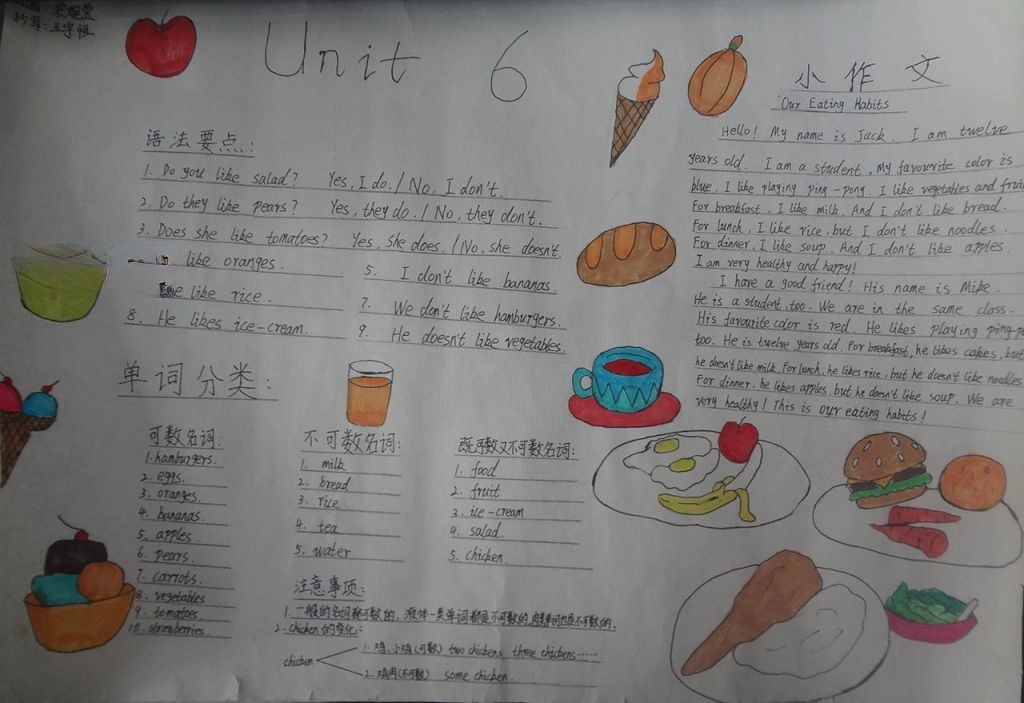 Unit 6
语法要点:
1. Do you like salad? Yes, I do. / No, I don't.
2. Do they like pears? Yes, they do. / No, they don't.
3. Does she like tomatoes? Yes, she does. / No, she doesn't.
like oranges.
5. I don't like bananas.
like rice.
7. We don't like hamburgers.
8. He likes ice-cream.
9. He doesn't like vegetables.
单词分类:
可数名词:
1. hamburgers.
2. eggs.
3. oranges.
4. bananas.
5. apples.
6. pears.
7. carrots.
8. vegetables
9. tomatoes.
10. strawberries.
不可数名词:
1. milk
2. bread
3. rice
4. tea
5. water
既可数又不可数名词:
1. food
2. fruit
3. ice-cream
4. salad.
5. chicken.
注意事项:
1. 一般的名词都可数的, 液体一类单词都是不可数的, 肉类单词也是不可数的.
2. chicken 的变化:
chicken
1. 鸡. 小鸡(可数) two chickens three chickens……
2. 鸡肉(不可数) some chicken.
小作文
Our Eating Habits
Hello! My name is Jack. I am twelve
years old. I am a student, My favourite color is
blue. I like playing ping-pong. I like vegetables and fruit
For breakfast, I like milk. And I don't like bread.
For lunch, I like rice, but I don't like noodles.
For dinner, I like soup. And I don't like apples.
I am very healthy and happy!
I have a good friend! His name is Mike.
He is a student, too. We are in the same class.
His favourite color is red. He likes playing ping-p
too. He is twelve years old. For breakfast, he likes cakes, but
he doesn't like milk. For lunch, he likes rice, but he doesn't like noodles
For dinner, he likes apples, but he doesn't like soup. We are
very healthy! This is our eating habits!